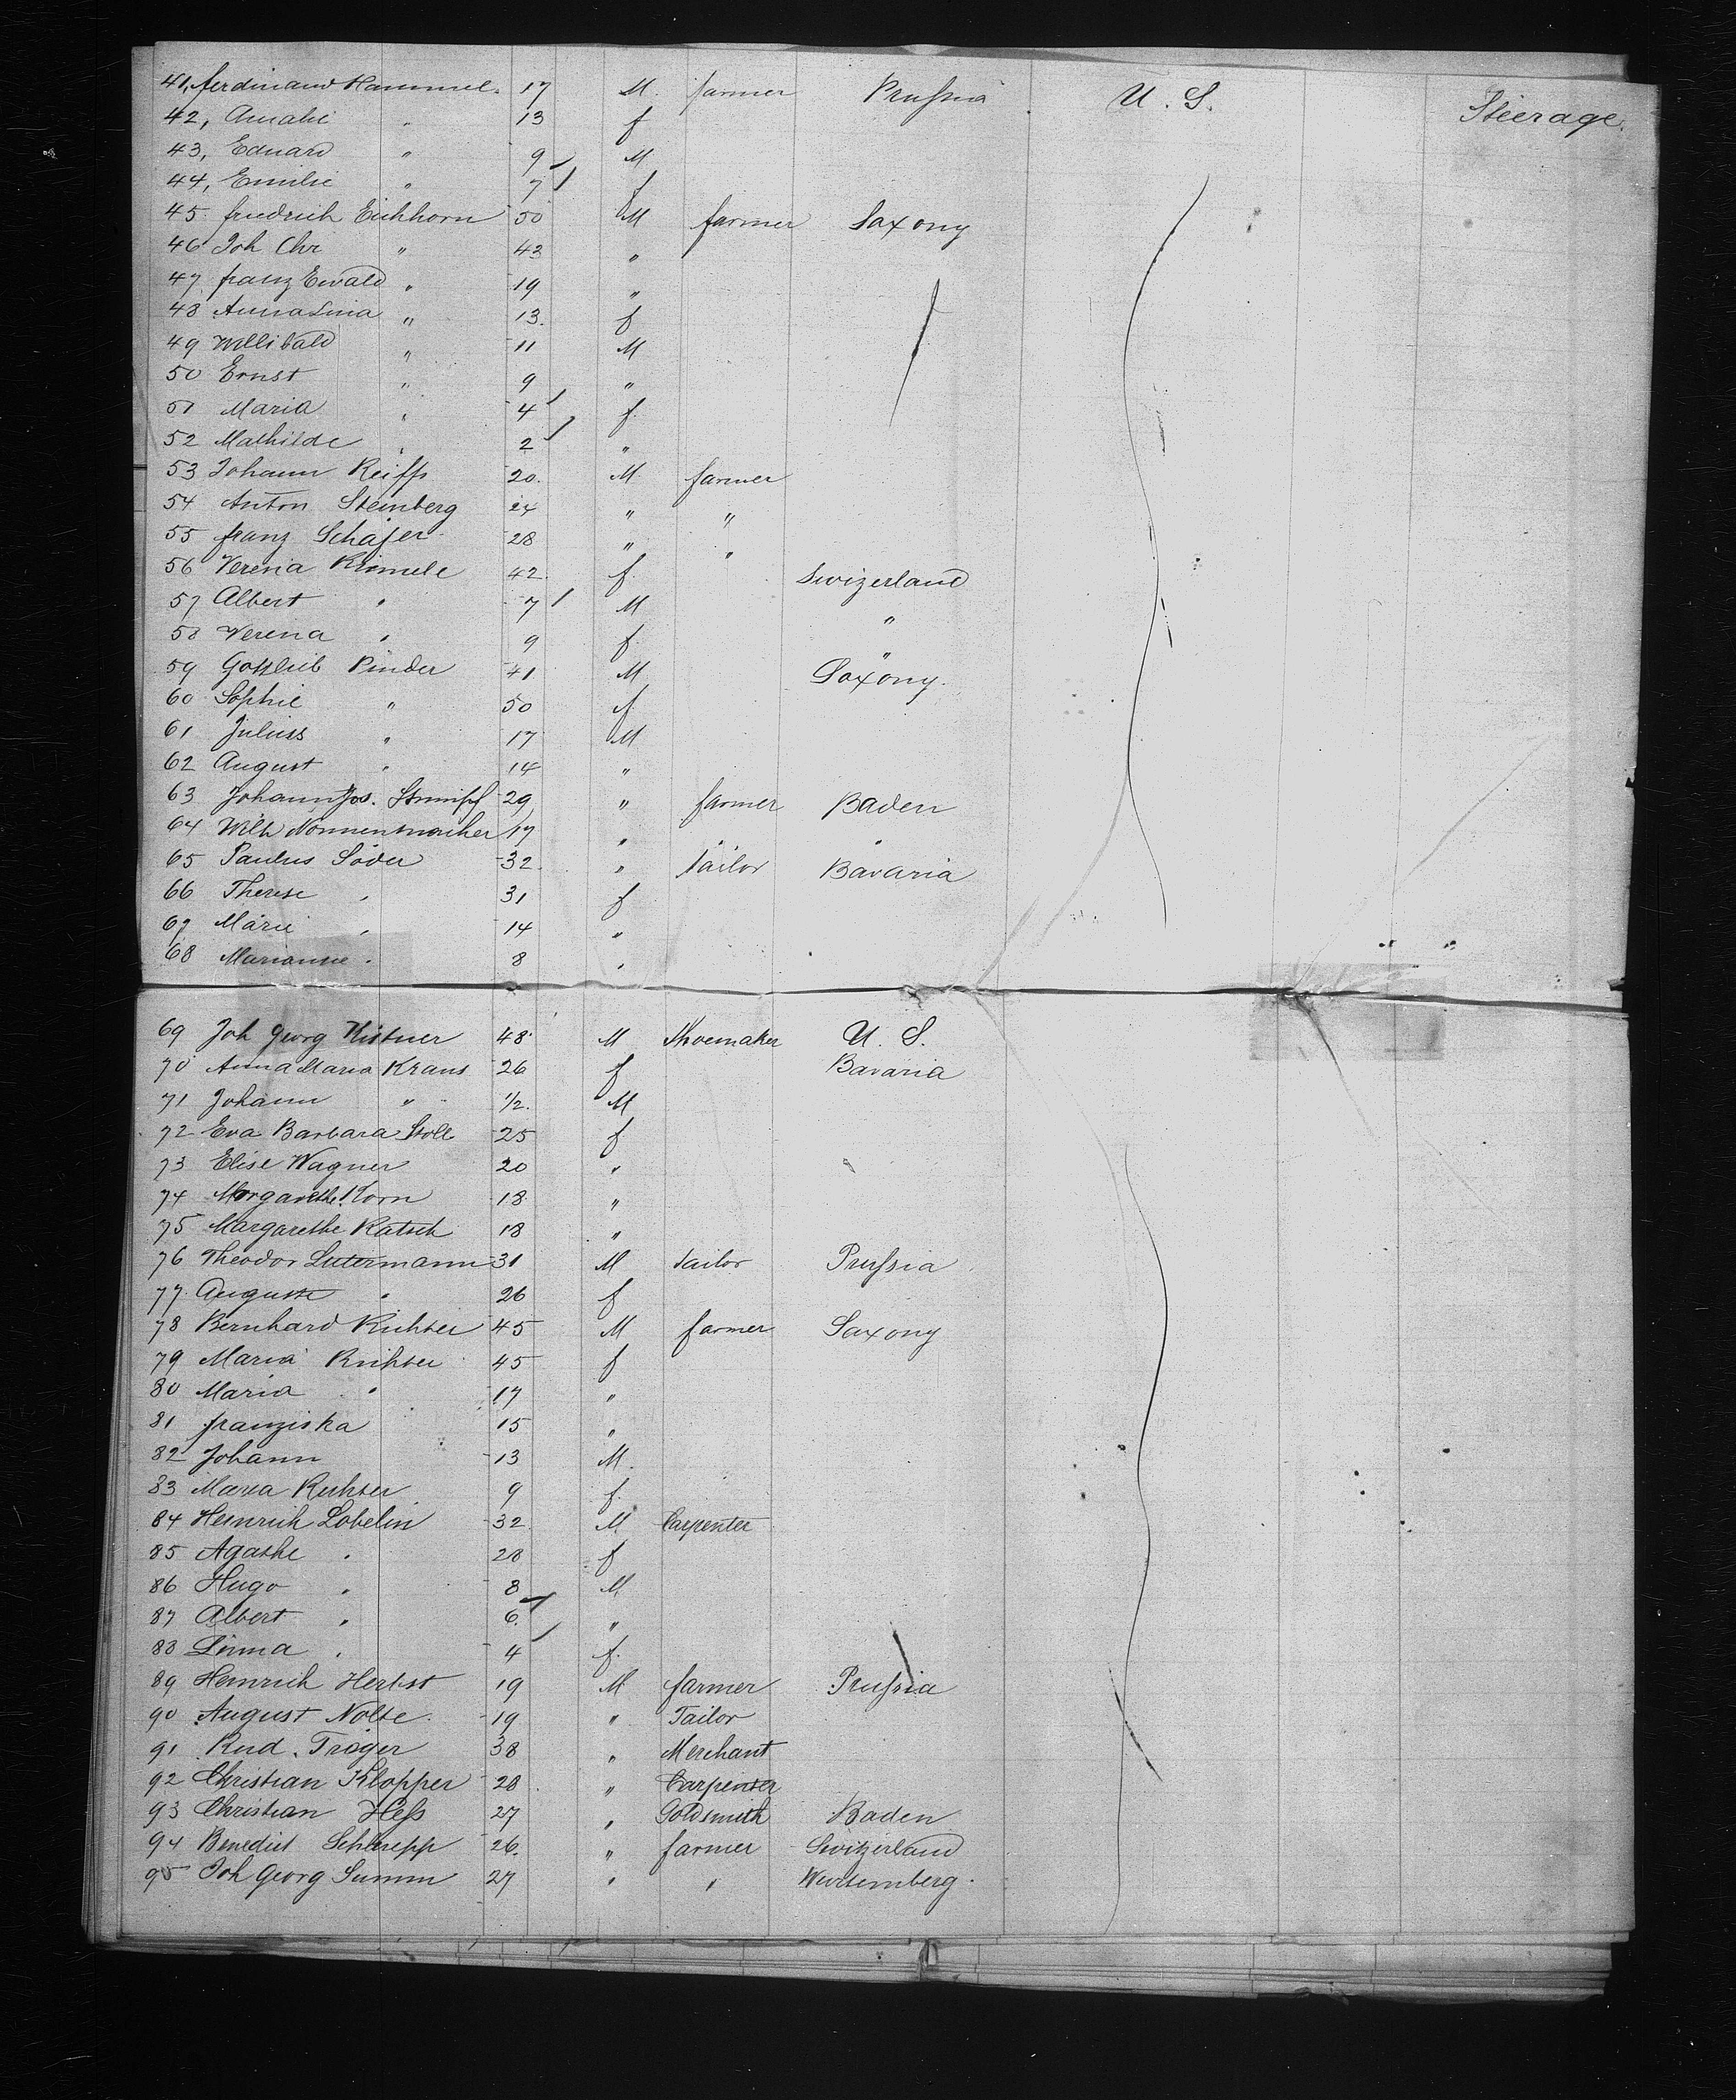 41, Ferdinand Hammel. 17 M. farmer Prussia U. S. Steerage.
42, Amalie " 13 f
43, Eduard " 9 M
44, Emilie " 7 f
45. Friedrich Eichhorn 50 M farmer Saxony
46 Joh Chr " 43 "
47 Franz Ewald " 19 "
48 Anna Lina " 13. f
49 Willibald " 11 M
50 Ernst " 9 "
51 Maria " 4 f.
52 Mathilde " 2 "
53 Johann Reiff 20. M farmer
54 Anton Steinberg 24 " "
55 Franz Schäfer 28 " "
56 Verena Kimmele 42. f. Swizerland
57 Albert " 7 M "
58 Verena " 9 f. "
59 Gottlieb Pinder 41 M Saxony.
60 Sophie " 50 f.
61 Julius " 17 M
62 August " 14 "
63 Johann Jos. Stumpf 29 " farmer Baden
64 Wilh Nonnenmacher 17 " " "
65 Paulus Söder 32. " Tailor Bavaria
66 Therese " 31 f
67 Marie " 14 "
68 Marianne " 8 "
69 Joh Georg Kistner 48 M Shoemaker U. S.
70 Anna Maria Kraus 26 f Bavaria
71 Johann " 1/2. M
72 Eva Barbara Stoll 25 f
73 Elise Wagner 20 "
74 Margarethe Korn 18 "
75 Margarethe Ratsch 18 "
76 Theodor Lutermann 31 M Tailor Prussia
77. Auguste " 26 f
78 Bernhard Richter 45 M farmer Saxony
79 Maria Richter 45 f
80 Maria " 17 "
81 Franziska 15 "
82 Johann 13 M.
83 Maria Richter 9 f.
84 Heinrich Lobelin 32 M Carpenter
85 Agathe " 28 f
86 Hugo " 8 M
87 Albert " 6. "
88 Linna " 4 f.
89 Heinrich Herbst 19 M farmer Prussia
90 August Nolte 19 " Tailor
91 Rud. Tröger 38 " Merchant
92 Christian Klopper 28 " Carpenter
93 Christian Hess 27 " Goldsmith Baden
94 Benedict Schlurepp 26. " farmer Switzerland
95 Joh Georg Summ 27 " " Wurtemberg.